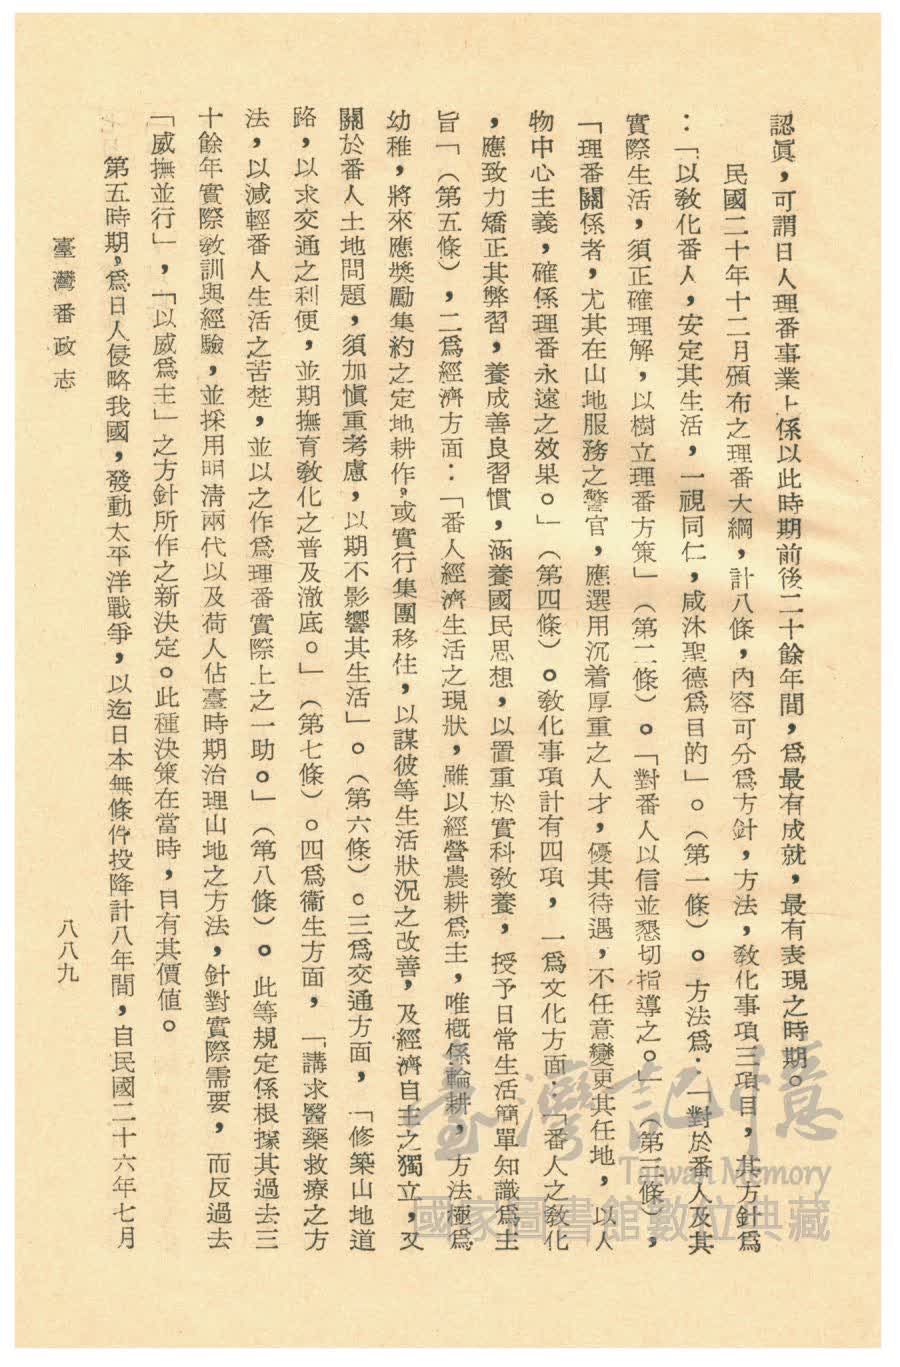 認眞，可謂日人理番事業上係以此時期前後二十餘年間，爲最有成就，最有表現之時期。
民國二十年十二月頒布之理番大綱，計八條，內容可分爲方針，方法，教化事項三項目，其方針爲
：「以教化番人，安定其生活，一視同仁，咸沐聖德爲目的」。（第一條）。方法爲：「對於番人及其
實際生活，須正確理解，以樹立理番方策」（第二條）。「對番人以信並懇切指導之。」（第三條），
「理番關係者，尤其在山地服務之警官，應選用沉着厚重之人才，優其待遇，不任意變更其任地，以人
物中心主義，確係理番永遠之效果。」（第四條）。教化事項計有四項，一爲文化方面：「番人之教化
，應致力矯正其弊習，養成善良習慣，涵養國民思想，以置重於實科教養，授予日常生活簡單知識爲主
旨」（第五條），二爲經濟方面：「番人經濟生活之現狀，雖以經營農耕爲主，唯槪係輪耕，方法極爲
幼稚，將來應獎勵集約之定地耕作，或實行集團移住，以謀彼等生活狀況之改善，及經濟自主之獨立，又
關於番人土地問題，須加愼重考慮，以期不影響其生活」。（第六條）。三爲交通方面，「修築山地道
路，以求交通之利便，並期撫育教化之普及澈底。」（第七條）。四爲衞生方面，「講求醫藥救療之方
法，以減輕番人生活之苦楚，並以之作爲理番實際上之一助。」（第八條）。此等規定係根據其過去三
十餘年實際教訓與經驗，並採用明淸兩代以及荷人佔臺時期治理山地之方法，針對實際需要，而反過去
「威撫並行」，「以威爲主」之方針所作之新決定。此種決策在當時，自有其價値。
第五時期，爲日人侵略我國，發動太平洋戰爭，以迄日本無條件投降計八年間，自民國二十六年七月
臺灣番政志
八八九
臺灣記憶
Taiwan Memory
國家圖書館數位典藏